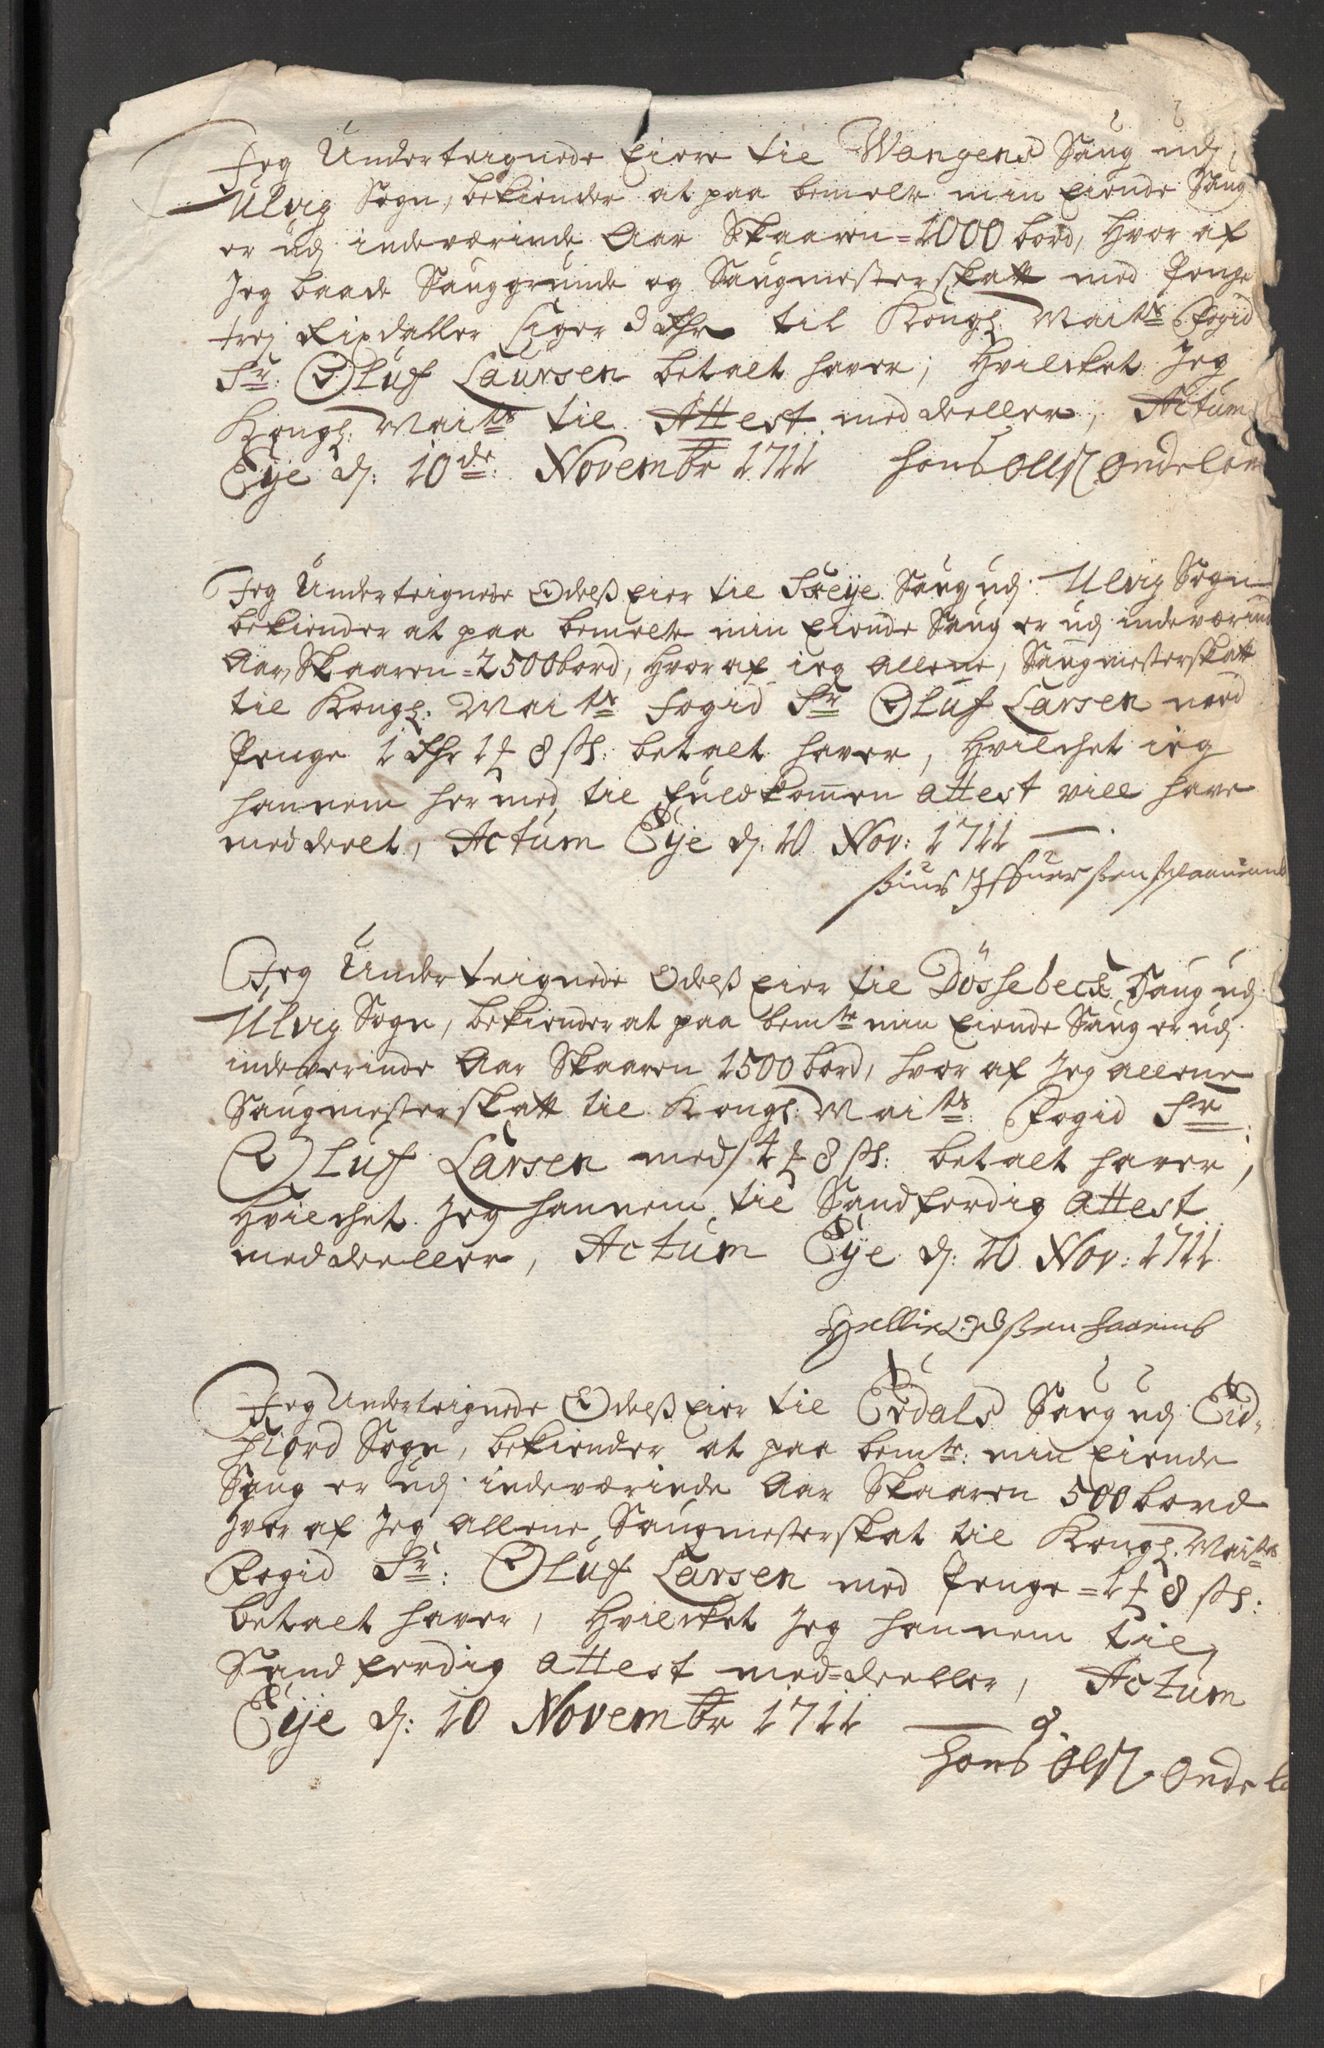 Jeg Underteignede Eiere til Wangens Saug udj
Ulvig Sogn, bekiender at paa bemelte min Eiende Saug
er udj indeværinde Aar Skaaren = 1000 bord, hvor af
Jeg baade Sauggrunde og Saugmesterskatt med Penge
trej Rixdaller siger 3 Rdr til Kongl: Maits Fogid
Sr: Oluf Laursen betalt haver, hvilcket Jeg
Kongl: Maits til Attest meddeeller, Actum
Eije d: 10de: Novembr 1711 hans Olls
Jeg Underteignede Odelss Eier til Eije Saug udj Ulvig Sogn
bekiender at paa bemelte min Eiende Saug er udj indeværind
Aar, Skaaren = 2500 bord, hvor af ieg allene, Saugmesterskatt
til Kongl: Maits fogid Sr Oluf Larsen med
Penge 1 Rdr 1 # 8 sh: betalt haver, hvilchet ieg
hannem hermed til fuldkommen attest vill have
meddeelt, Actum Eije d: 10 Nov: 1711
Jeg Underteignede Odelss Eier til Dössebeck Saug udj
Ulvig Sogn, bekiender at paa bemte min Eiende Saug er udj
indeverinde Aar Skaaren 1500 bord, hvor af Jeg allene
Saugmesterskatt til Kongl: Maits: Fogid Sr:
Oluf Larsen med 4 # 8 sh: betalt haver,
hvilchet Jeg hannem til Sandferdig attest
meddeeller, Actum Eije d: 10 Nov: 1711
Jeg Underteignede Odelss Eier til Erdals Saug udj Eid-
fiord Sogn, bekiender at paa bemte: min Eiende
Saug er udj indeværinde Aar Skaaren 500 bord
hvor af Jeg allene Saugmesterskat til Kongl: Maits
Fogid Sr: Oluf Larsen med Penge = 1 # 8 sh:
betalt haver, hvilcket Jeg hannem til
Sandferdig attest med-deeller, Actum
Eije d: 10 Novembr 1711
hans Ols